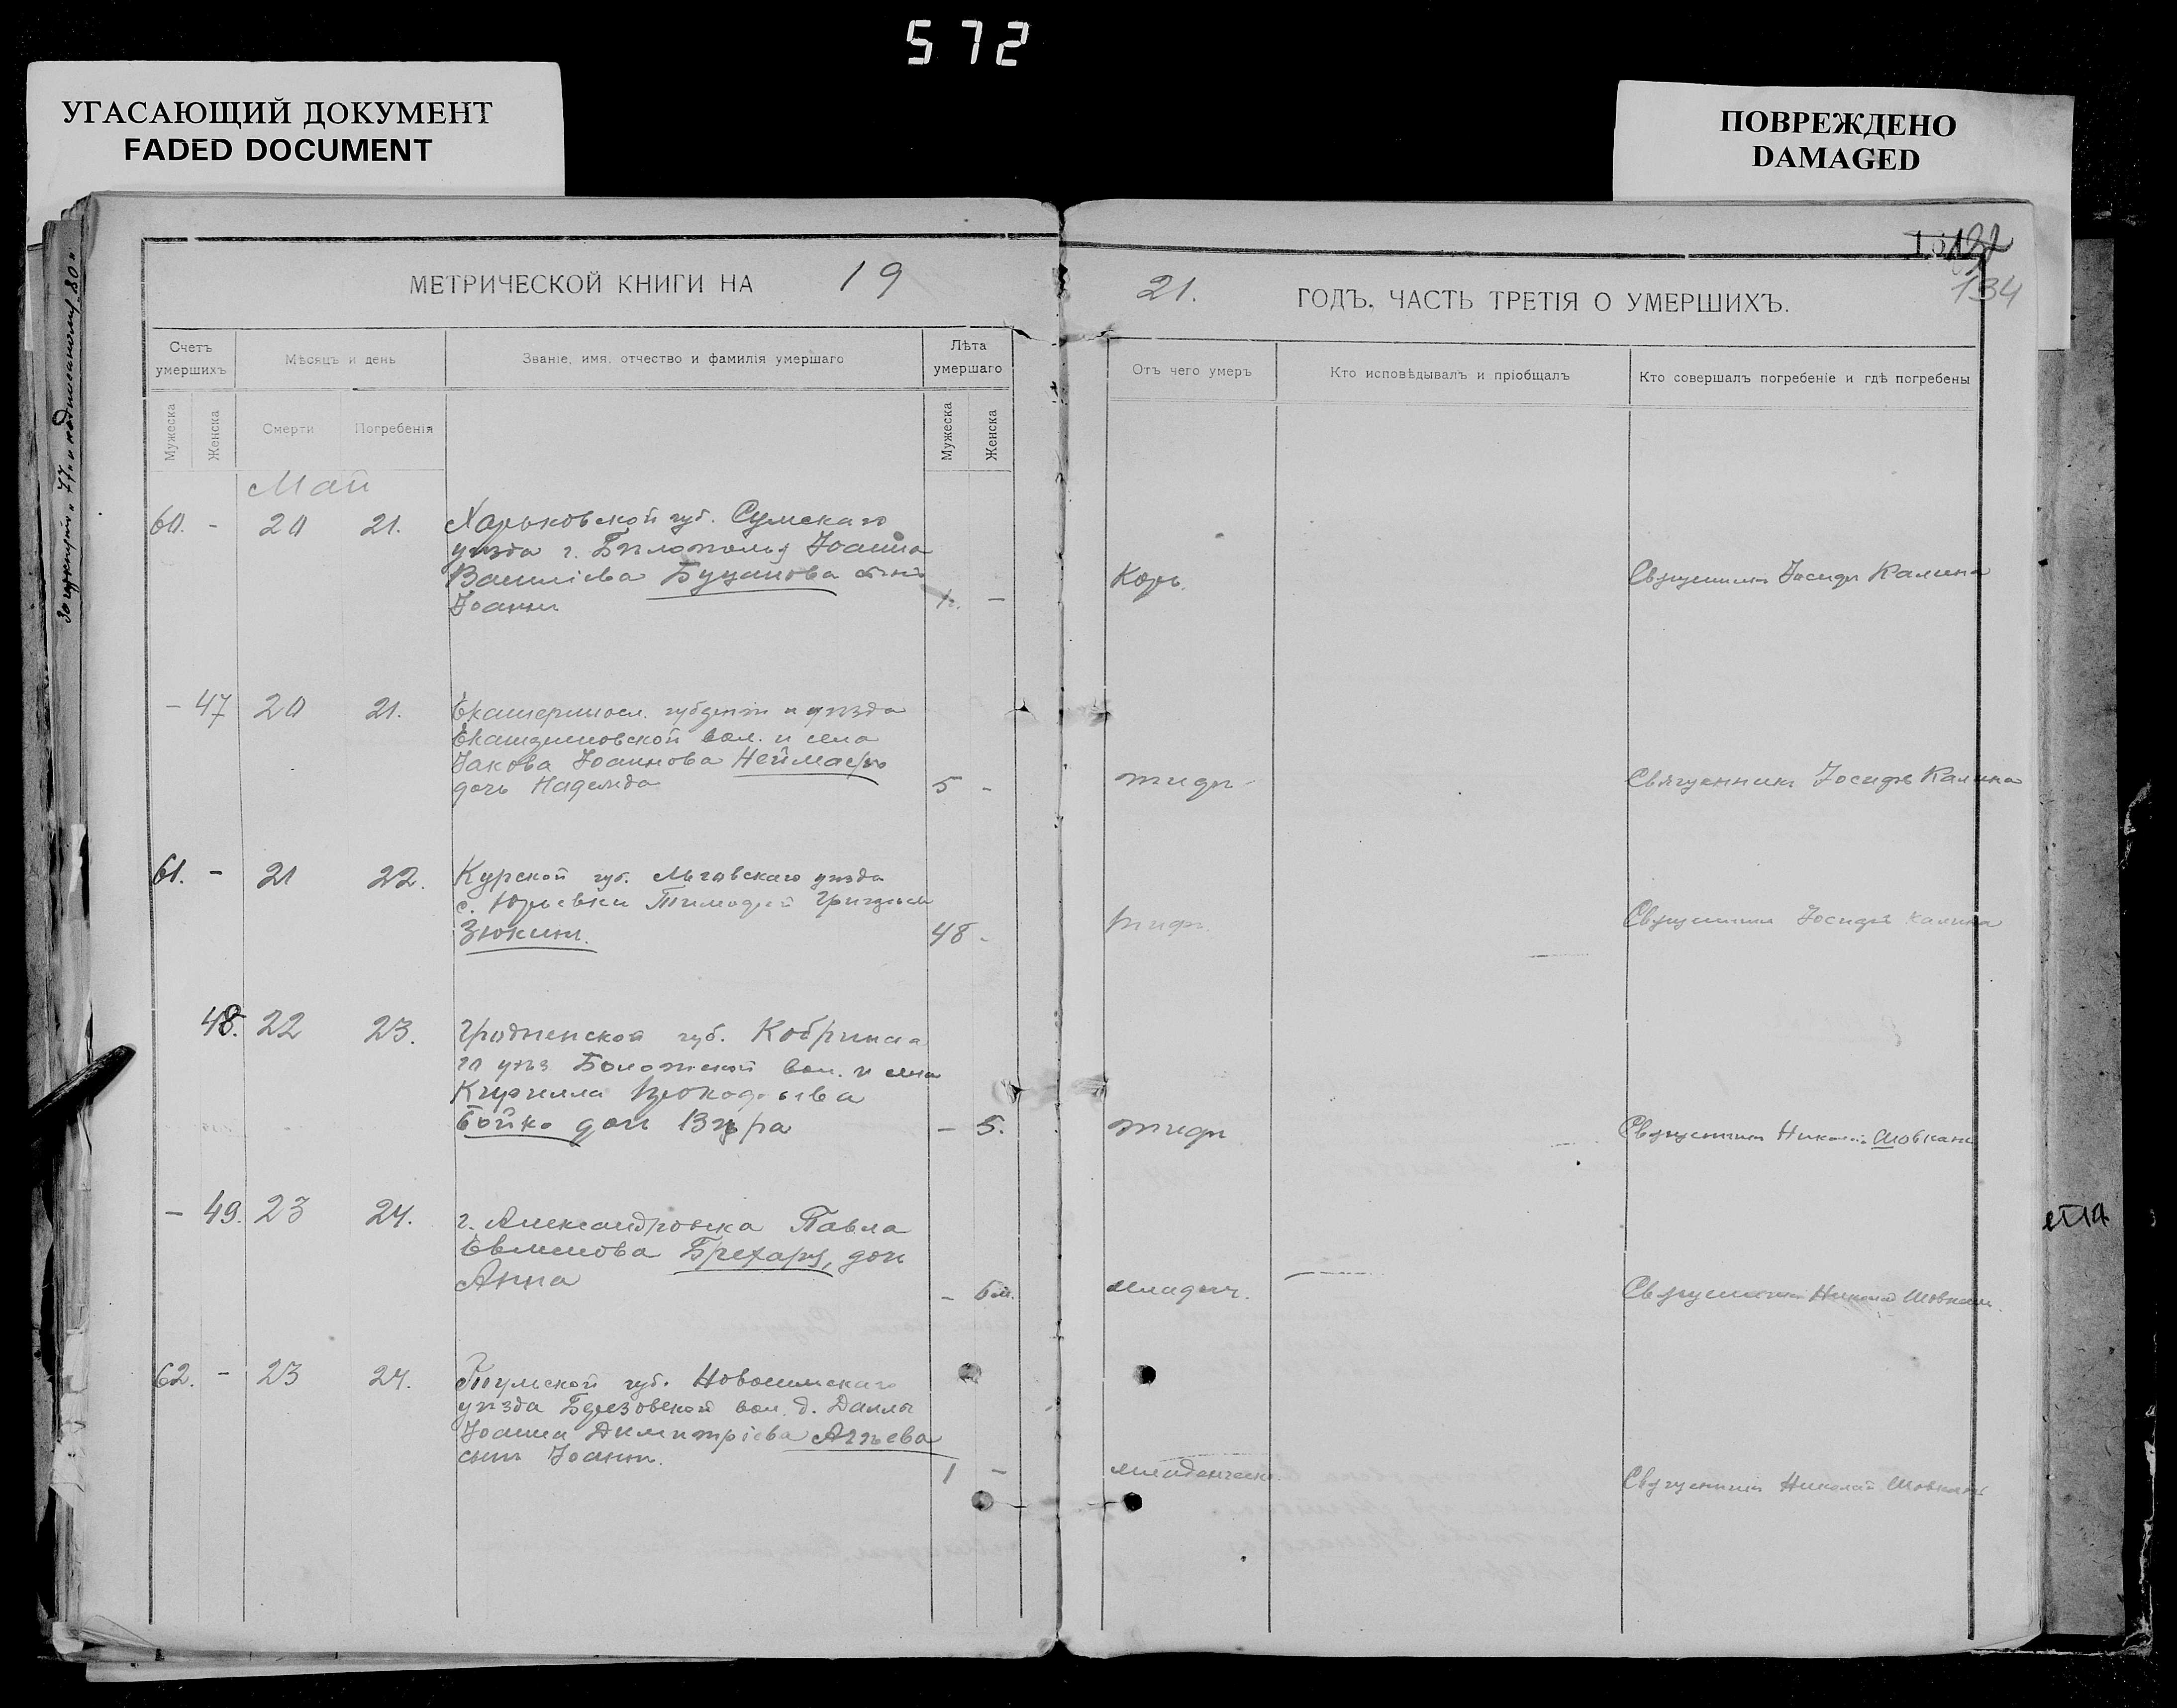 572
УГАСАЮЩИЙ ДОКУМЕНТ
FADED DOCUMENT
ПОВРЕЖДЕНО
DAMAGED
134
МЕТРИЧЕСКОЙ КНИГИ НА 19
21. ГОДЪ, ЧАСТЬ ТРЕТІЯ О УМЕРШИХЪ.
Счетъ умершихъ
Мѣсяцъ и день
Званіе, имя, отчество и фамилія умершаго
Лѣта умершаго
Отъ чего умеръ
Кто исповѣдывалъ и пріобщалъ
Кто совершалъ погребеніе и гдѣ погребены
Мужеска
Женска
Смерти
Погребенія
Мужеска
Женска
Май
60. - 20 21. Харьковской губ. Сумскаго
уѣзда г. Бѣлополья Іоанна
Василіева Буцанова сынъ
Іоаннъ 1. -
Корь.
Священникъ Іосифъ Калина
- 47 20 21. Екатериносл. губерніи и уѣзда
вол. и села
Іакова Іоаннова Неймаръ
дочь Надежда 5 -
тифъ
Священникъ Іосифъ Калина
61. - 21 22. Курской губ. Льговскаго уѣзда
с. Юрьевки Тимофей
Зюкинъ. 48 -
тифъ
Священникъ Іосифъ Калина
48. 22 23. Гродненской губ. Кобринска
го уѣз. вол. и села
Кирилла Прокофьева
Бойко дочь Вѣра - 5.
тифъ
Священникъ Николай Шовкань
- 49. 23 24. г. Александровска Павла
Евменова дочь
Анна - 6 м.
младенч.
Священникъ Николай Шовкань
62. - 23 24. Тульской губ. Новосильскаго
уѣзда Березовской вол. д.
Іоанна Димитріева Агѣева
сынъ Іоаннъ. 1 -
младенческ.
Священникъ Николай Шовкань